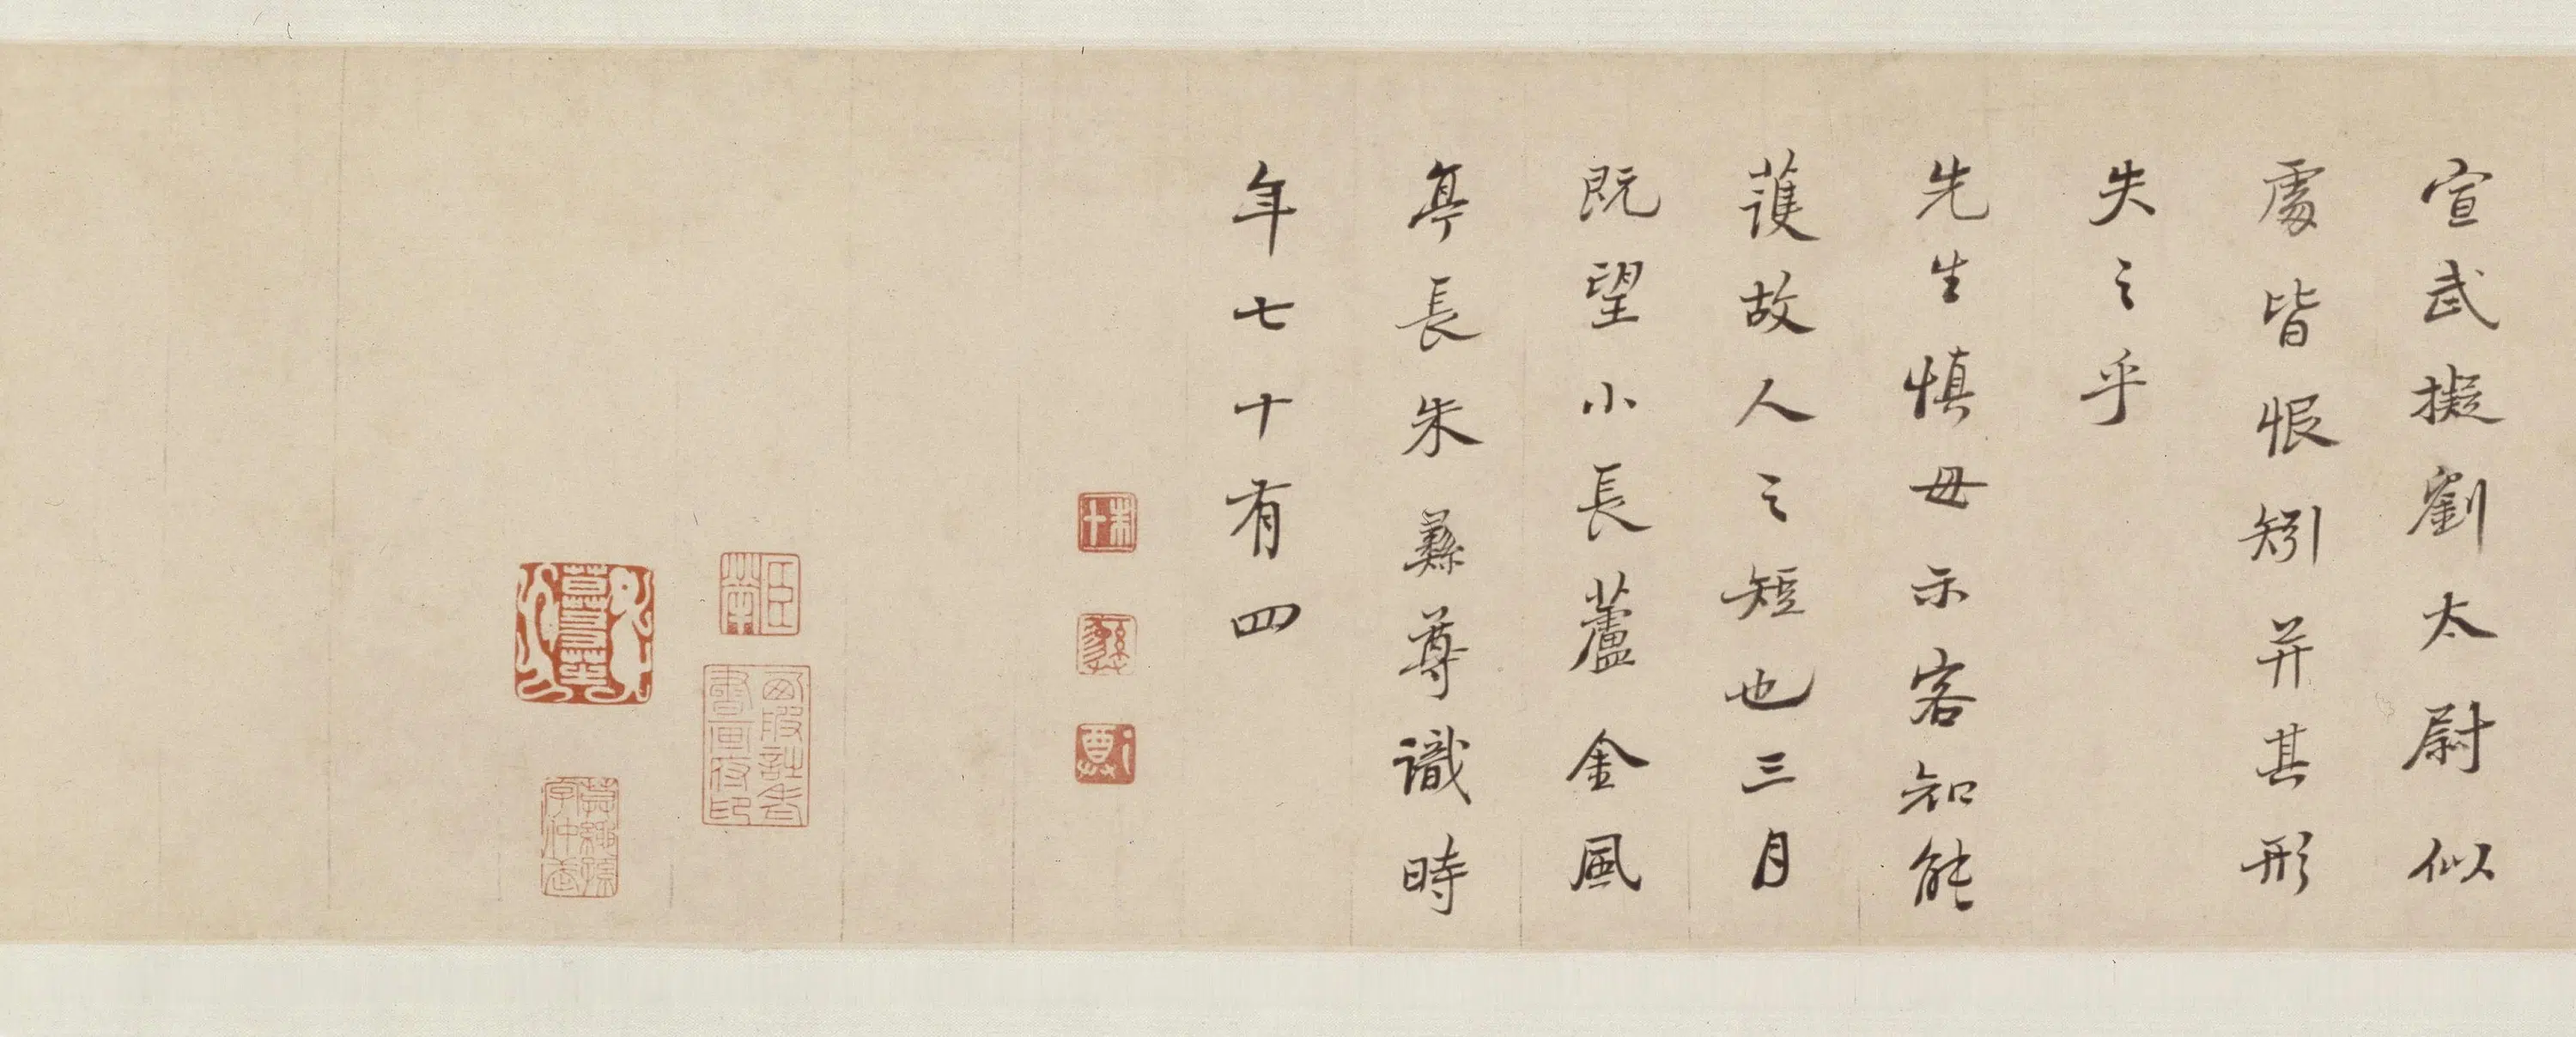 宣武擬劉太尉似
處皆恨矧并其形
失之乎
先生慎毋示客知能
護故人之短也三月
既望小長蘆金風
亭長朱彝尊識時
年七十有四
朱十
彝
尊